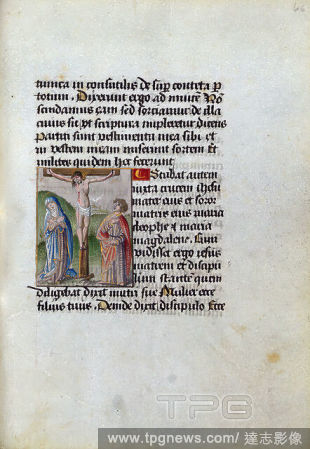 66
tunica in consutilis desup contexta p
totum. Dixerunt ergo ad invicem Non
scindamus eam sed sortiamur de illa
cuius sit ut scriptura impleretur dicens
Partiti sunt vestimenta mea sibi et
in vestem meam miserunt sortem Et
milites quidem hec fecerunt
Stabat autem
iuxta crucem ihesu
mater eius et soror
matris eius maria
cleophe et maria
magdalene. Cum
vidisset ergo ihesus
matrem et discipu
lum stantem quem
diligebat dixit matri sue Mulier ecce
filius tuus. Deinde dixit discipulo Ecce
TPG
www.tpgnews.com/ 達志影像